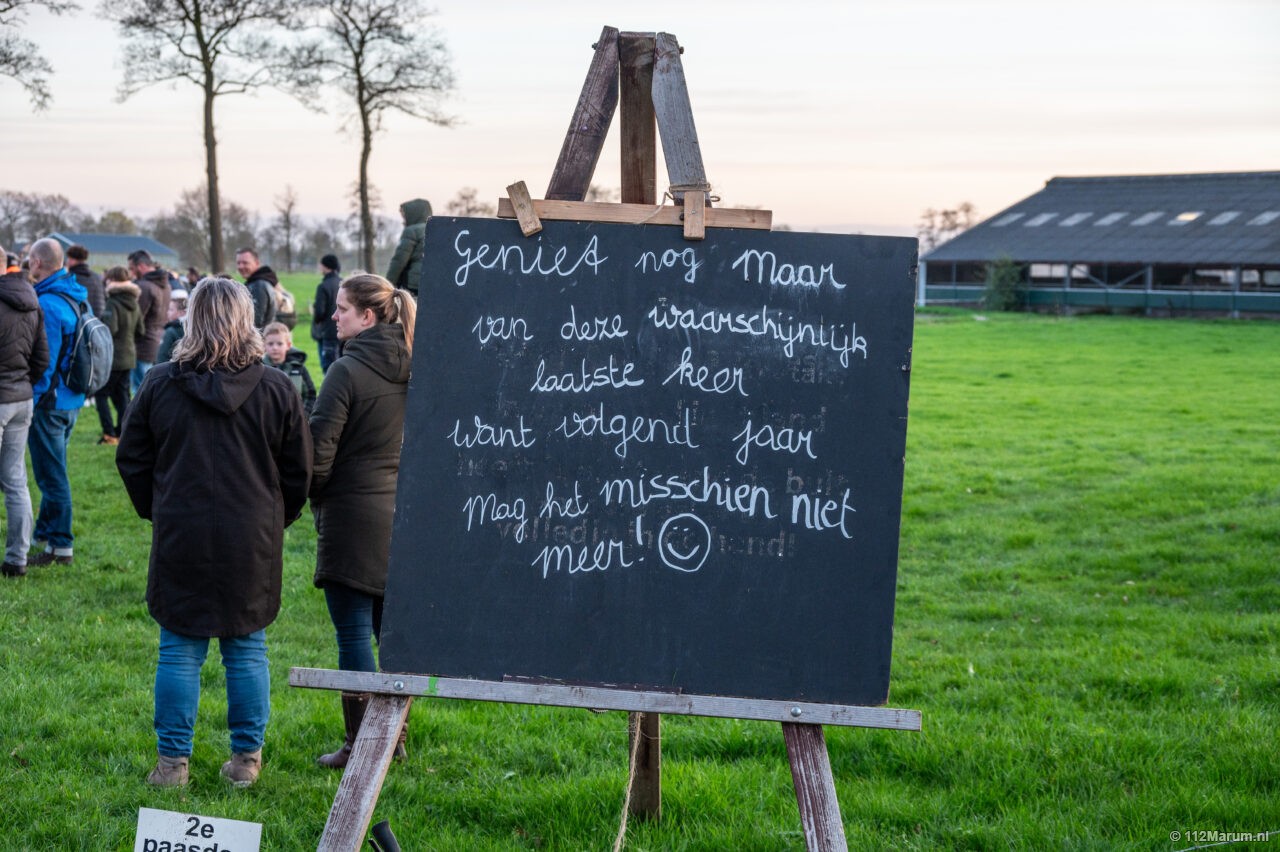 Geniet nog maar
van deze waarschijnlijk
laatste keer
want volgend jaar
mag het misschien niet
meer!
2e
paasd
© 112Marum.nl